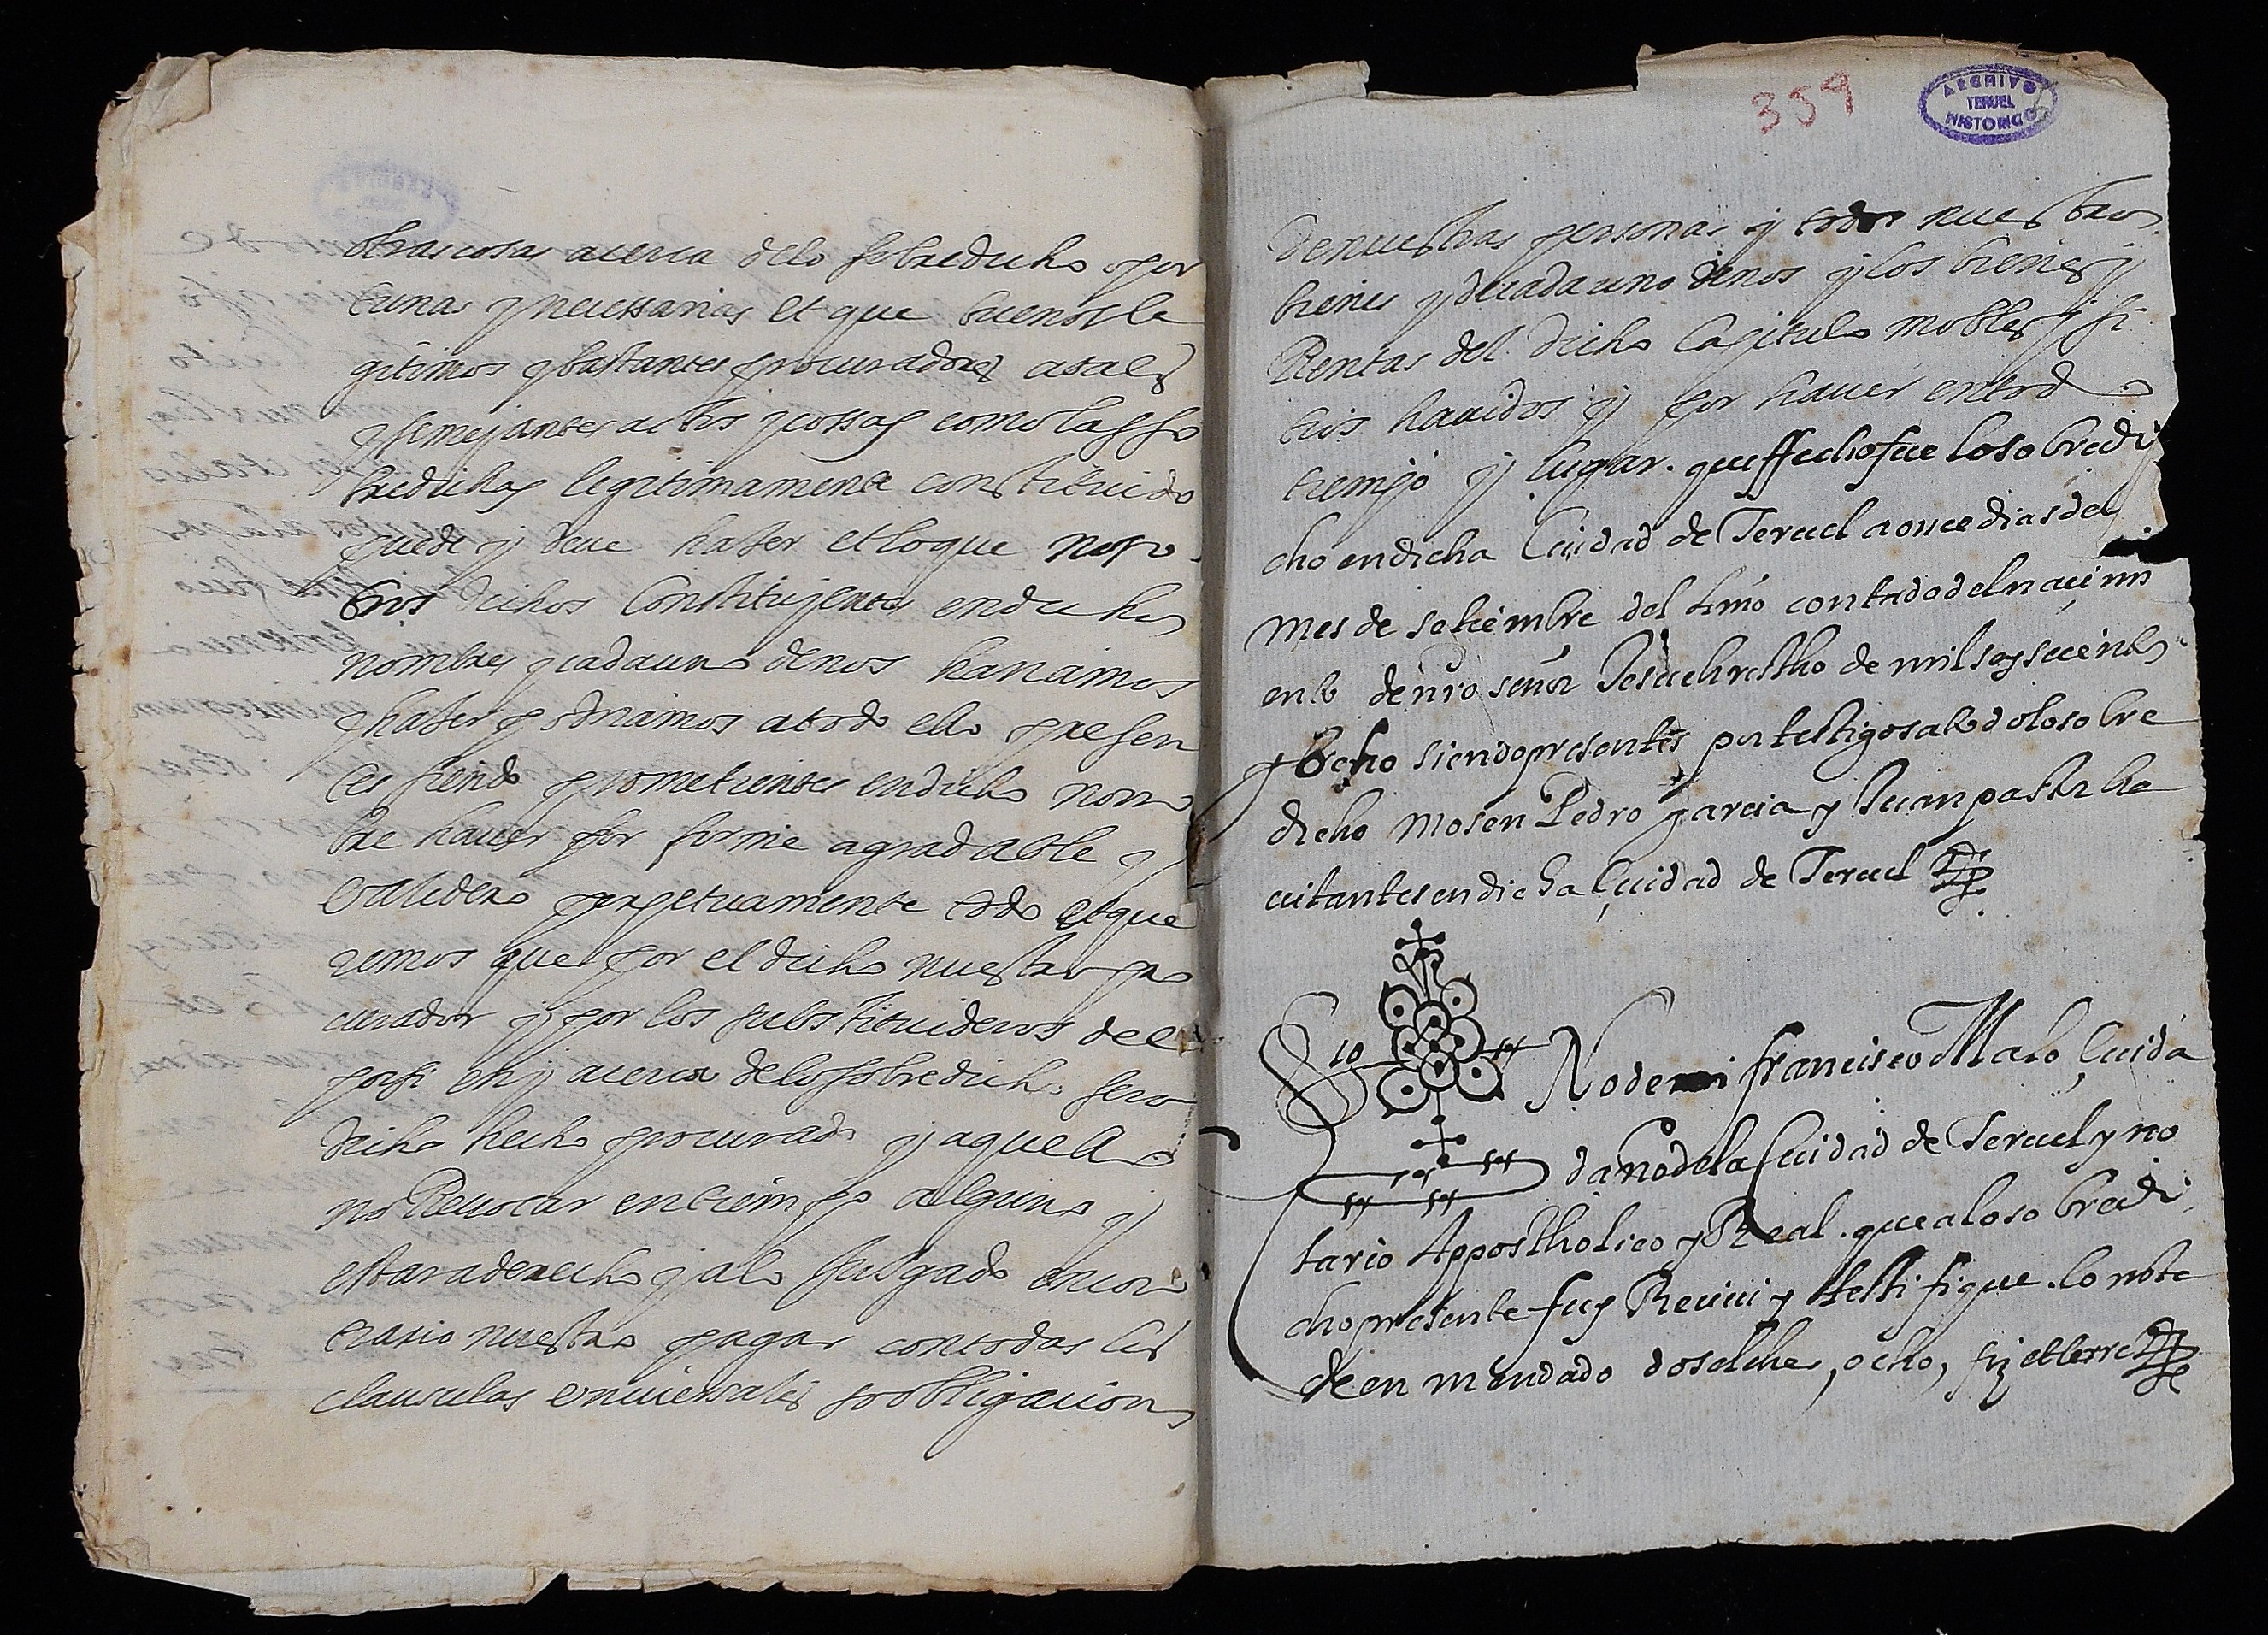 otras cosas acerca de lo sobredicho opor
tunas y necessarias et que buenos le
gitimos y bastantes procuradores a tales
y semejantes actos y cossas como las so
bredichas legitimamente constituido
puede y deve haser et lo que noso
tros dichos Constituyentes en dichos
nombres y cada uno de nos hariamos
y haser podriamos a todo ello presen
tes siendo prometientes en dicho nom
bre haver por firme agradable y
valedero perpetuamente todo et que
remos que por el dicho nuestro pro
curador y por los substituideros del
por si en y acerca de lo sobredicho sera
dicho hecho procurado y aquello
no Revocar en tiempo alguno y
estar a derecho y a lo Jusgado en con
trario nuestro pagar con todas las
clausulas universales so obligacion
de nuestras personas y todos nuestros
bienes y de cada uno de nos y los bienes y
Rentas del dicho Capitulo mobles y si
tios havidos y por haver en todo
tiempo y lugar. que ffecho fue lo sobredi
cho en dicha Ciudad de Teruel a once dias del
mes de setiembre del Año contado del nacimi
ento de nro señor Jesuchristho de mil seyscientos
y ocho siendo presentes por testigos a todo lo sobre
dicho mosen Pedro garcia y Juan pastor ha
vitantes en dicha Ciudad de Teruel
Sig No de mi francisco Malo Ciuda
dano de la Ciudad de Teruel y no
tario Appostholico y Real. que a lo sobredi
cho presente fuy Recivi y testifique. co
de en mendado dos el che, ocho, fiz et cerre
359
ARCHIVO
TERUEL
HISTORICO